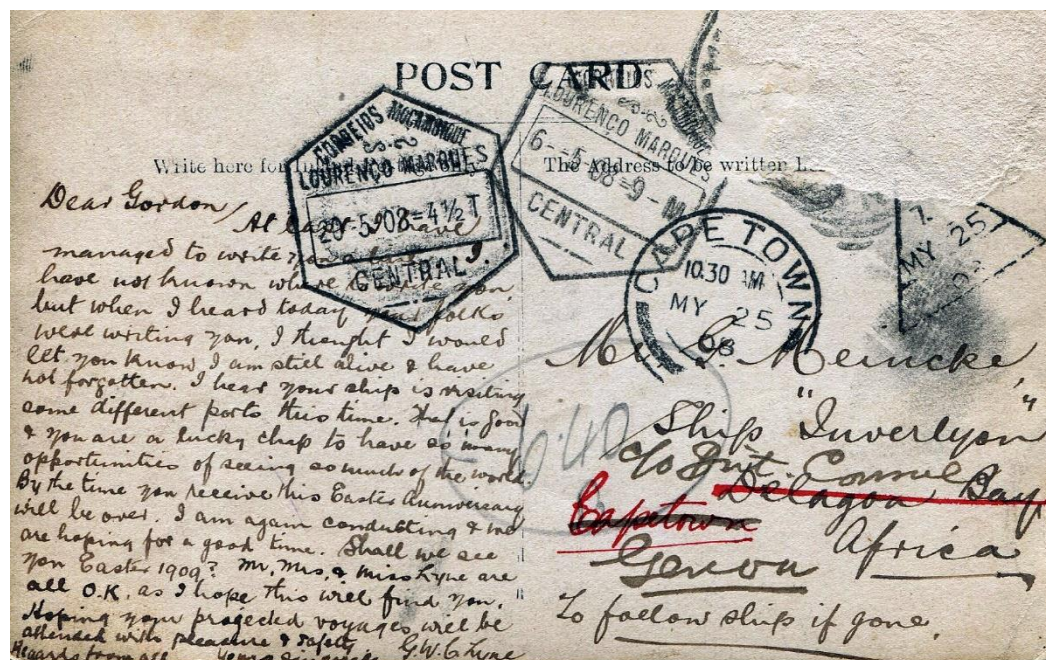 POST CARD
CORREIOS MOÇAMBIQUE
LOURENCO MARQUES
20-5-08=4½T
CENTRAL
CORREIOS
LOURENCO MARQUES
6--5-08=9-M
CENTRAL
Write here for
The Address to be written
CAPE TOWN
10.30 AM
MY 25
08
MY 25
Dear Gordon,
At last I have
managed to write you a
have not known where to write you,
but when I heard today your folks
were writing you, I thought I would
let you know I am still alive & have
not forgotten. I hear your ship is visiting
some different ports this time. That is good
& you are a lucky chap to have so many
opportunities of seeing so much of the world.
By the time you receive this Easter Anniversary
will be over. I am again conducting & we
are hoping for a good time. Shall we see
you Easter 1909? Mr, Mrs, & Miss Lyne are
all O.K. as I hope this will find you.
Hoping your projected voyages will be
attended with pleasure & safety
Regards from all Yours sincerely G.W.C. Lyne
Mr G. Meincke,
Ship "Inverlyon"
c/o Brit Consul
Delagoa Bay
Capetown
Africa
Genoa
To follow ship if gone.